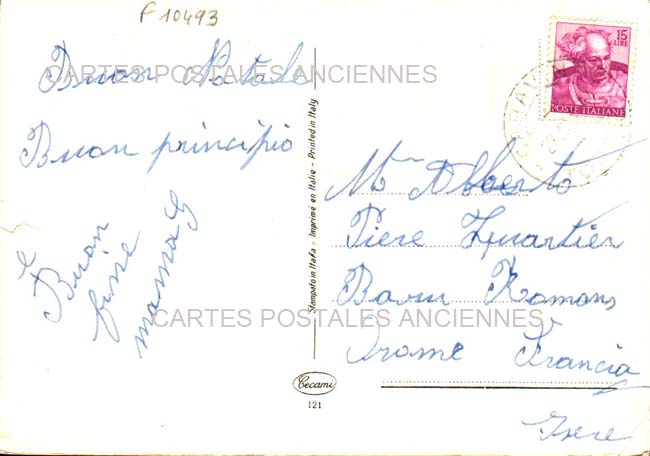 F 10493
Buon Natale
Buon principio
e
Buon
fine
mamma G
CARTES POSTALES ANCIENNES
CARTES POSTALES ANCIENNES
Stampato in Italia - Imprimé en Italie - Printed in Italy
Cecami
121
15
LIRE
POSTE ITALIANE
Alberto
Piere Quartier
Romans
Drome Francia
Isere